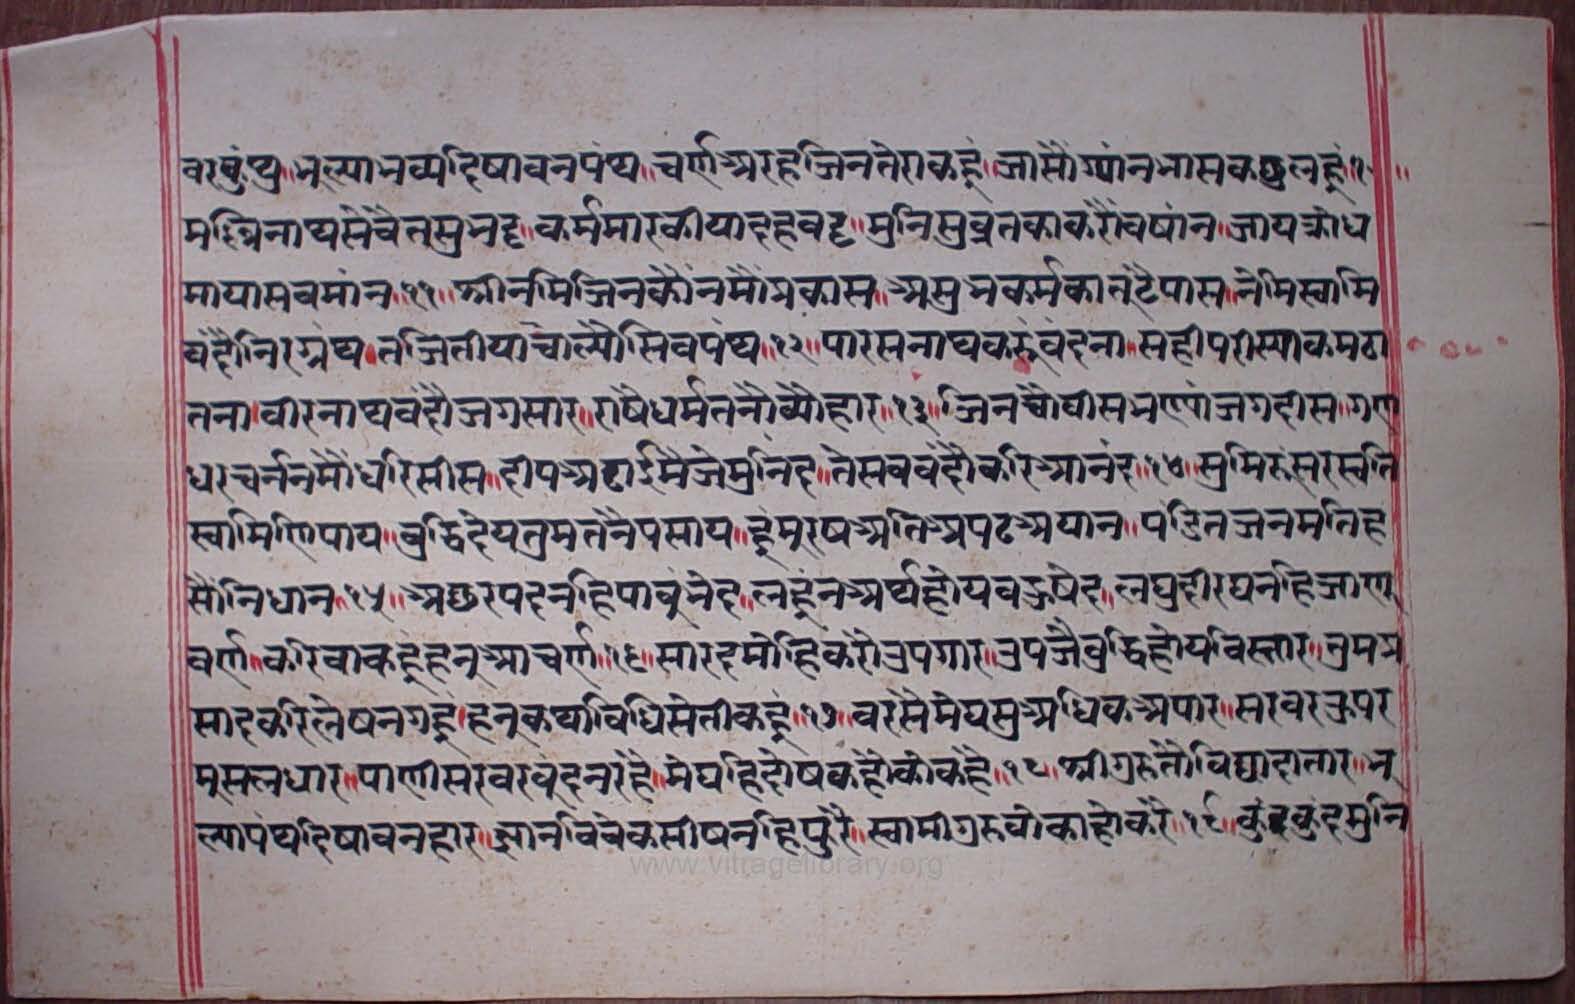 वरकुंथु॥भूल्याभव्यदिषावनपंथ॥चर्णअरहजिनतेराकहूं॥जासौंग्यांनभासकछुलहूं॥१०॥
मल्लिनाथसेवैतूसुभद्र॥कर्ममारकीयादहवट्ट॥मुनिसुव्रतकाकरौंवषांन॥जायक्रोध
मायासवमांन॥११॥श्रीनमिजिनकौंनमौंप्रकास॥असुभकर्मकातूटैपास॥नेमिस्वामि
वंदौनिरग्रंथ॥तजितीयाचाल्यौसिवपंथ॥१२॥पारसनाथकरूंवंदना॥सहीपरीस्याकमठा
तना॥वीरनाथवंदौजगसार॥राषैधर्मतनौंव्यौहार॥१३॥जिनचौवीसभण्यांजगदीस॥गण
धरचर्ननमौंधरिसीस॥दीपअढाईमैजेमुनिंद॥तेसववंदौकरिआनंद॥१४॥सुमिरूंसरस्वति
स्वामिणिपाय॥वुद्धिदेयतुमतनैपसाय॥हूंमूरषअतिअपढअयान॥पंडितजनमतिह
सौंनिधान॥१५॥अछरपदनहिपावुंभेद॥लहूंनअर्थहोयवऊषेद॥लघुदीरघनहिजाणू
वर्ण॥करिवाकहूंहनूआचर्ण॥१६॥सारदमोहिकरोउपगार॥उपजैवुद्धिहोयविस्तार॥तुमप्र
सादकरिलेषनगहूं॥हनुकथाविधिसेतीकहूं॥१७॥वरसैमेघसुअधिकअपार॥सरवरऊपर
मूसलधार॥पाणीसरवरवूंदनरहै॥मेघहिदोषकहौकोकहै॥१८॥श्रीगुरुतौविद्यादातार॥भू
ल्यापंथदिषावनहार॥ज्ञानविवेकसीषनहिफुरै॥स्वामीगुरुवोकाहोकरै॥१९॥कुंदकुंदमुनि
www.vitragelibrary.org